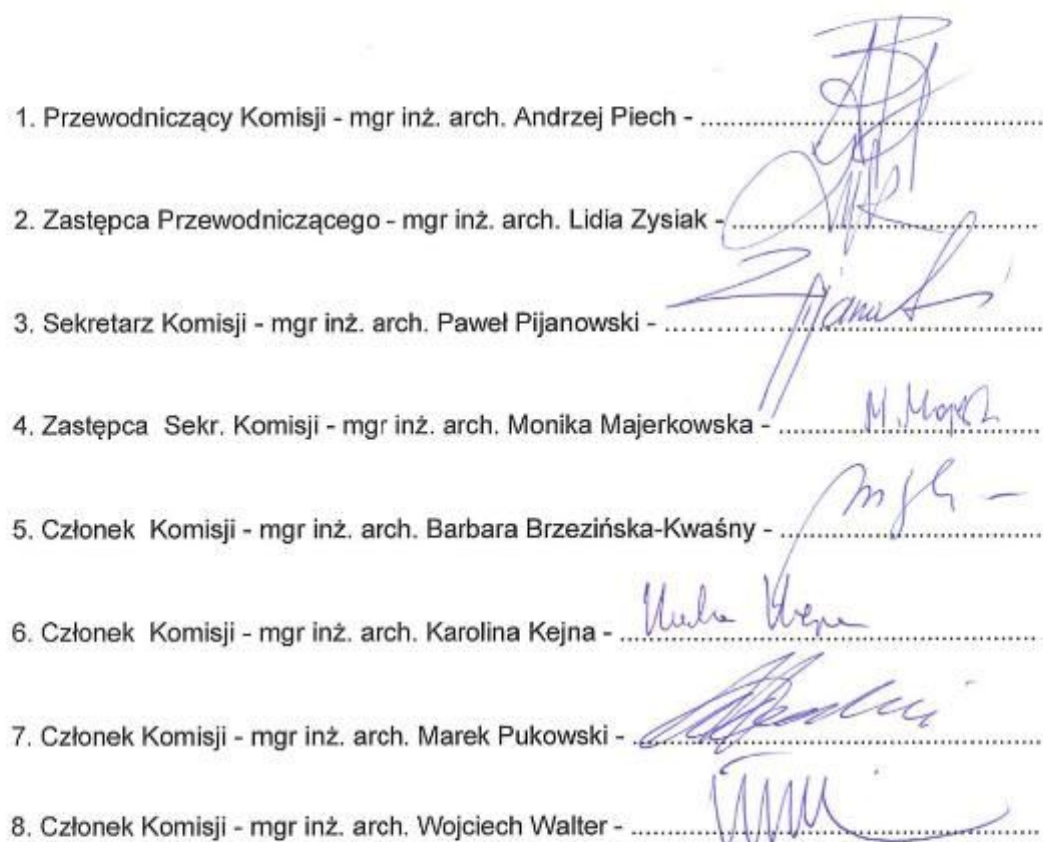 1. Przewodniczący Komisji - mgr inż. arch. Andrzej Piech - ..............................................
2. Zastępca Przewodniczącego - mgr inż. arch. Lidia Zysiak - ..........................................
3. Sekretarz Komisji - mgr inż. arch. Paweł Pijanowski - ..................................................
4. Zastępca  Sekr. Komisji - mgr inż. arch. Monika Majerkowska - ....................................
5. Członek  Komisji - mgr inż. arch. Barbara Brzezińska-Kwaśny - ....................................
6. Członek  Komisji - mgr inż. arch. Karolina Kejna - .......................................................
7. Członek Komisji - mgr inż. arch. Marek Pukowski - .....................................................
8. Członek Komisji - mgr inż. arch. Wojciech Walter - .....................................................